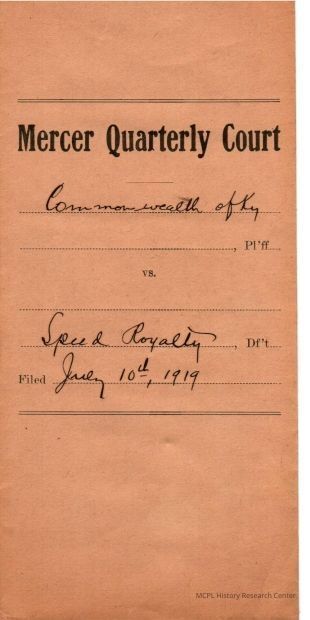 Mercer Quarterly Court
Commonwealth of Ky
, Pl'ff
vs.
Speed Royalty, Df't
Filed July 10th, 1919
MCPL History Research Center